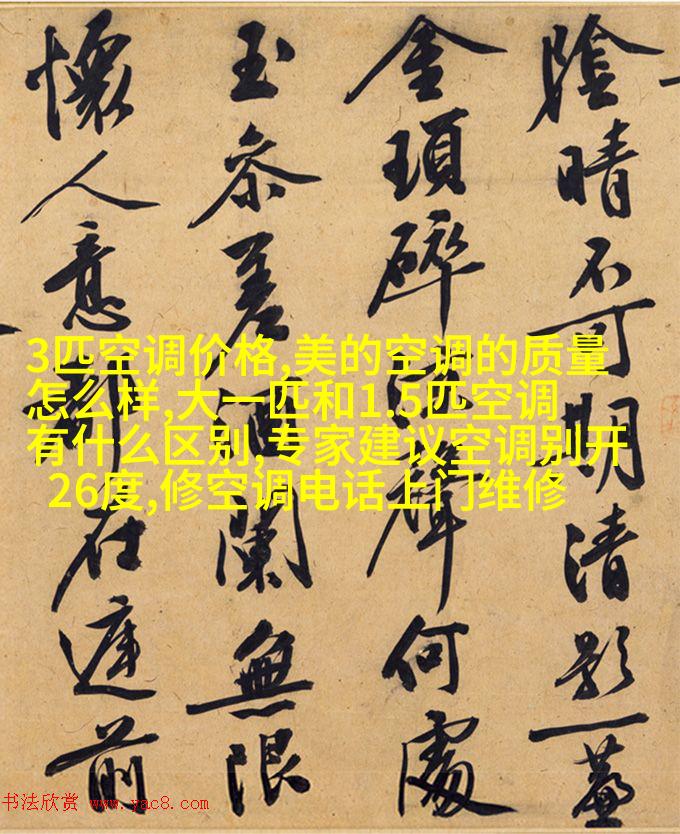 陰晴不可期清影一簾
金瑣碎風聲何處
玉參差酒闌無限
懷人意都在庭前
3匹空调价格,美的空调的质量
怎么样,大一匹和1.5匹空调
有什么区别,专家建议空调别开
26度,修空调电话上门维修
书法欣赏 www.yac8.com